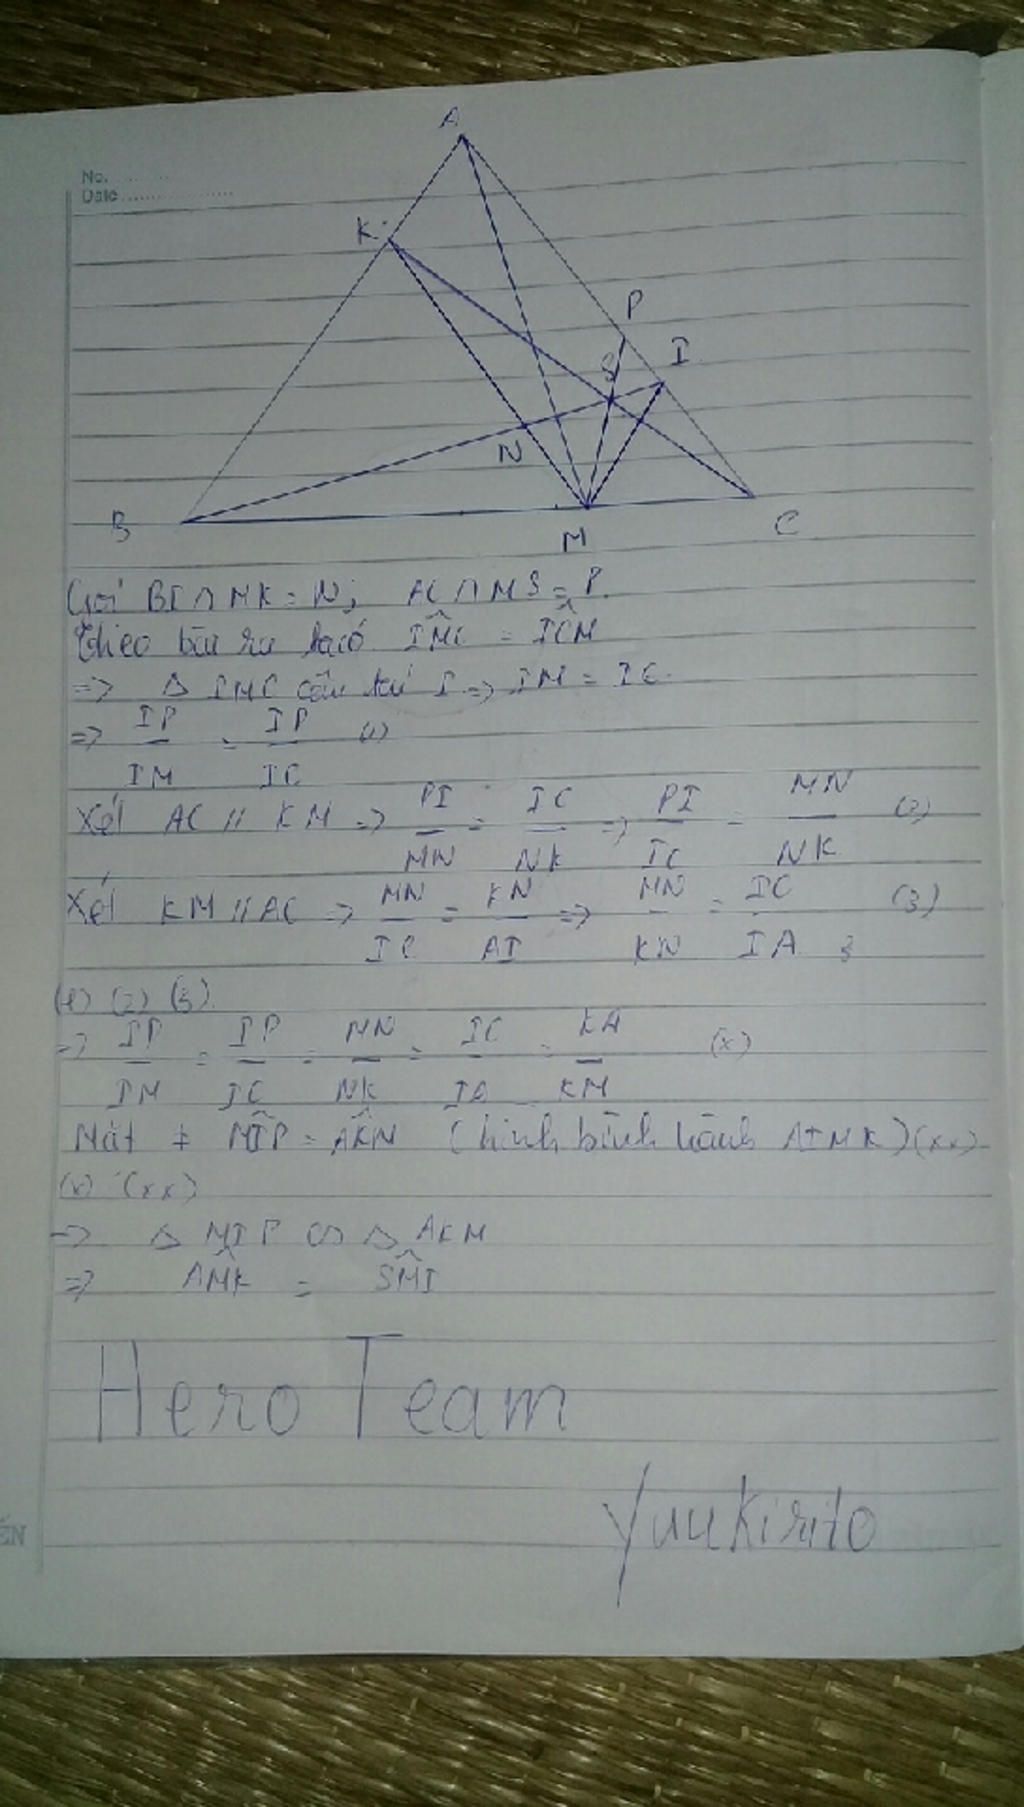 A
No.
Date
K
P
I
S
N
B
M
C
Gọi BI ∩ MK = N; AC ∩ MS = P.
Theo bài ra ta có IMC^ = ICM^
=> Δ IMC cân tại I => IM = IC.
=> IP/IM = IP/IC (1)
Xét AC // KM => PI/MN = IC/NK => PI/IC = MN/NK (2)
Xét KM // AC => MN/IC = KN/AI => MN/KN = IC/IA (3)
(1) (2) (3)
=> IP/IM = IP/IC = MN/NK = IC/IA = KA/KM (x)
Mặt ≠ MIP^ = AKN^ (hình bình hành AIMK) (xx)
(x) (xx)
=> Δ MIP ∽ Δ AKM
=> AMK^ = SMI^
Hero Team
Yuukirito
ẾN